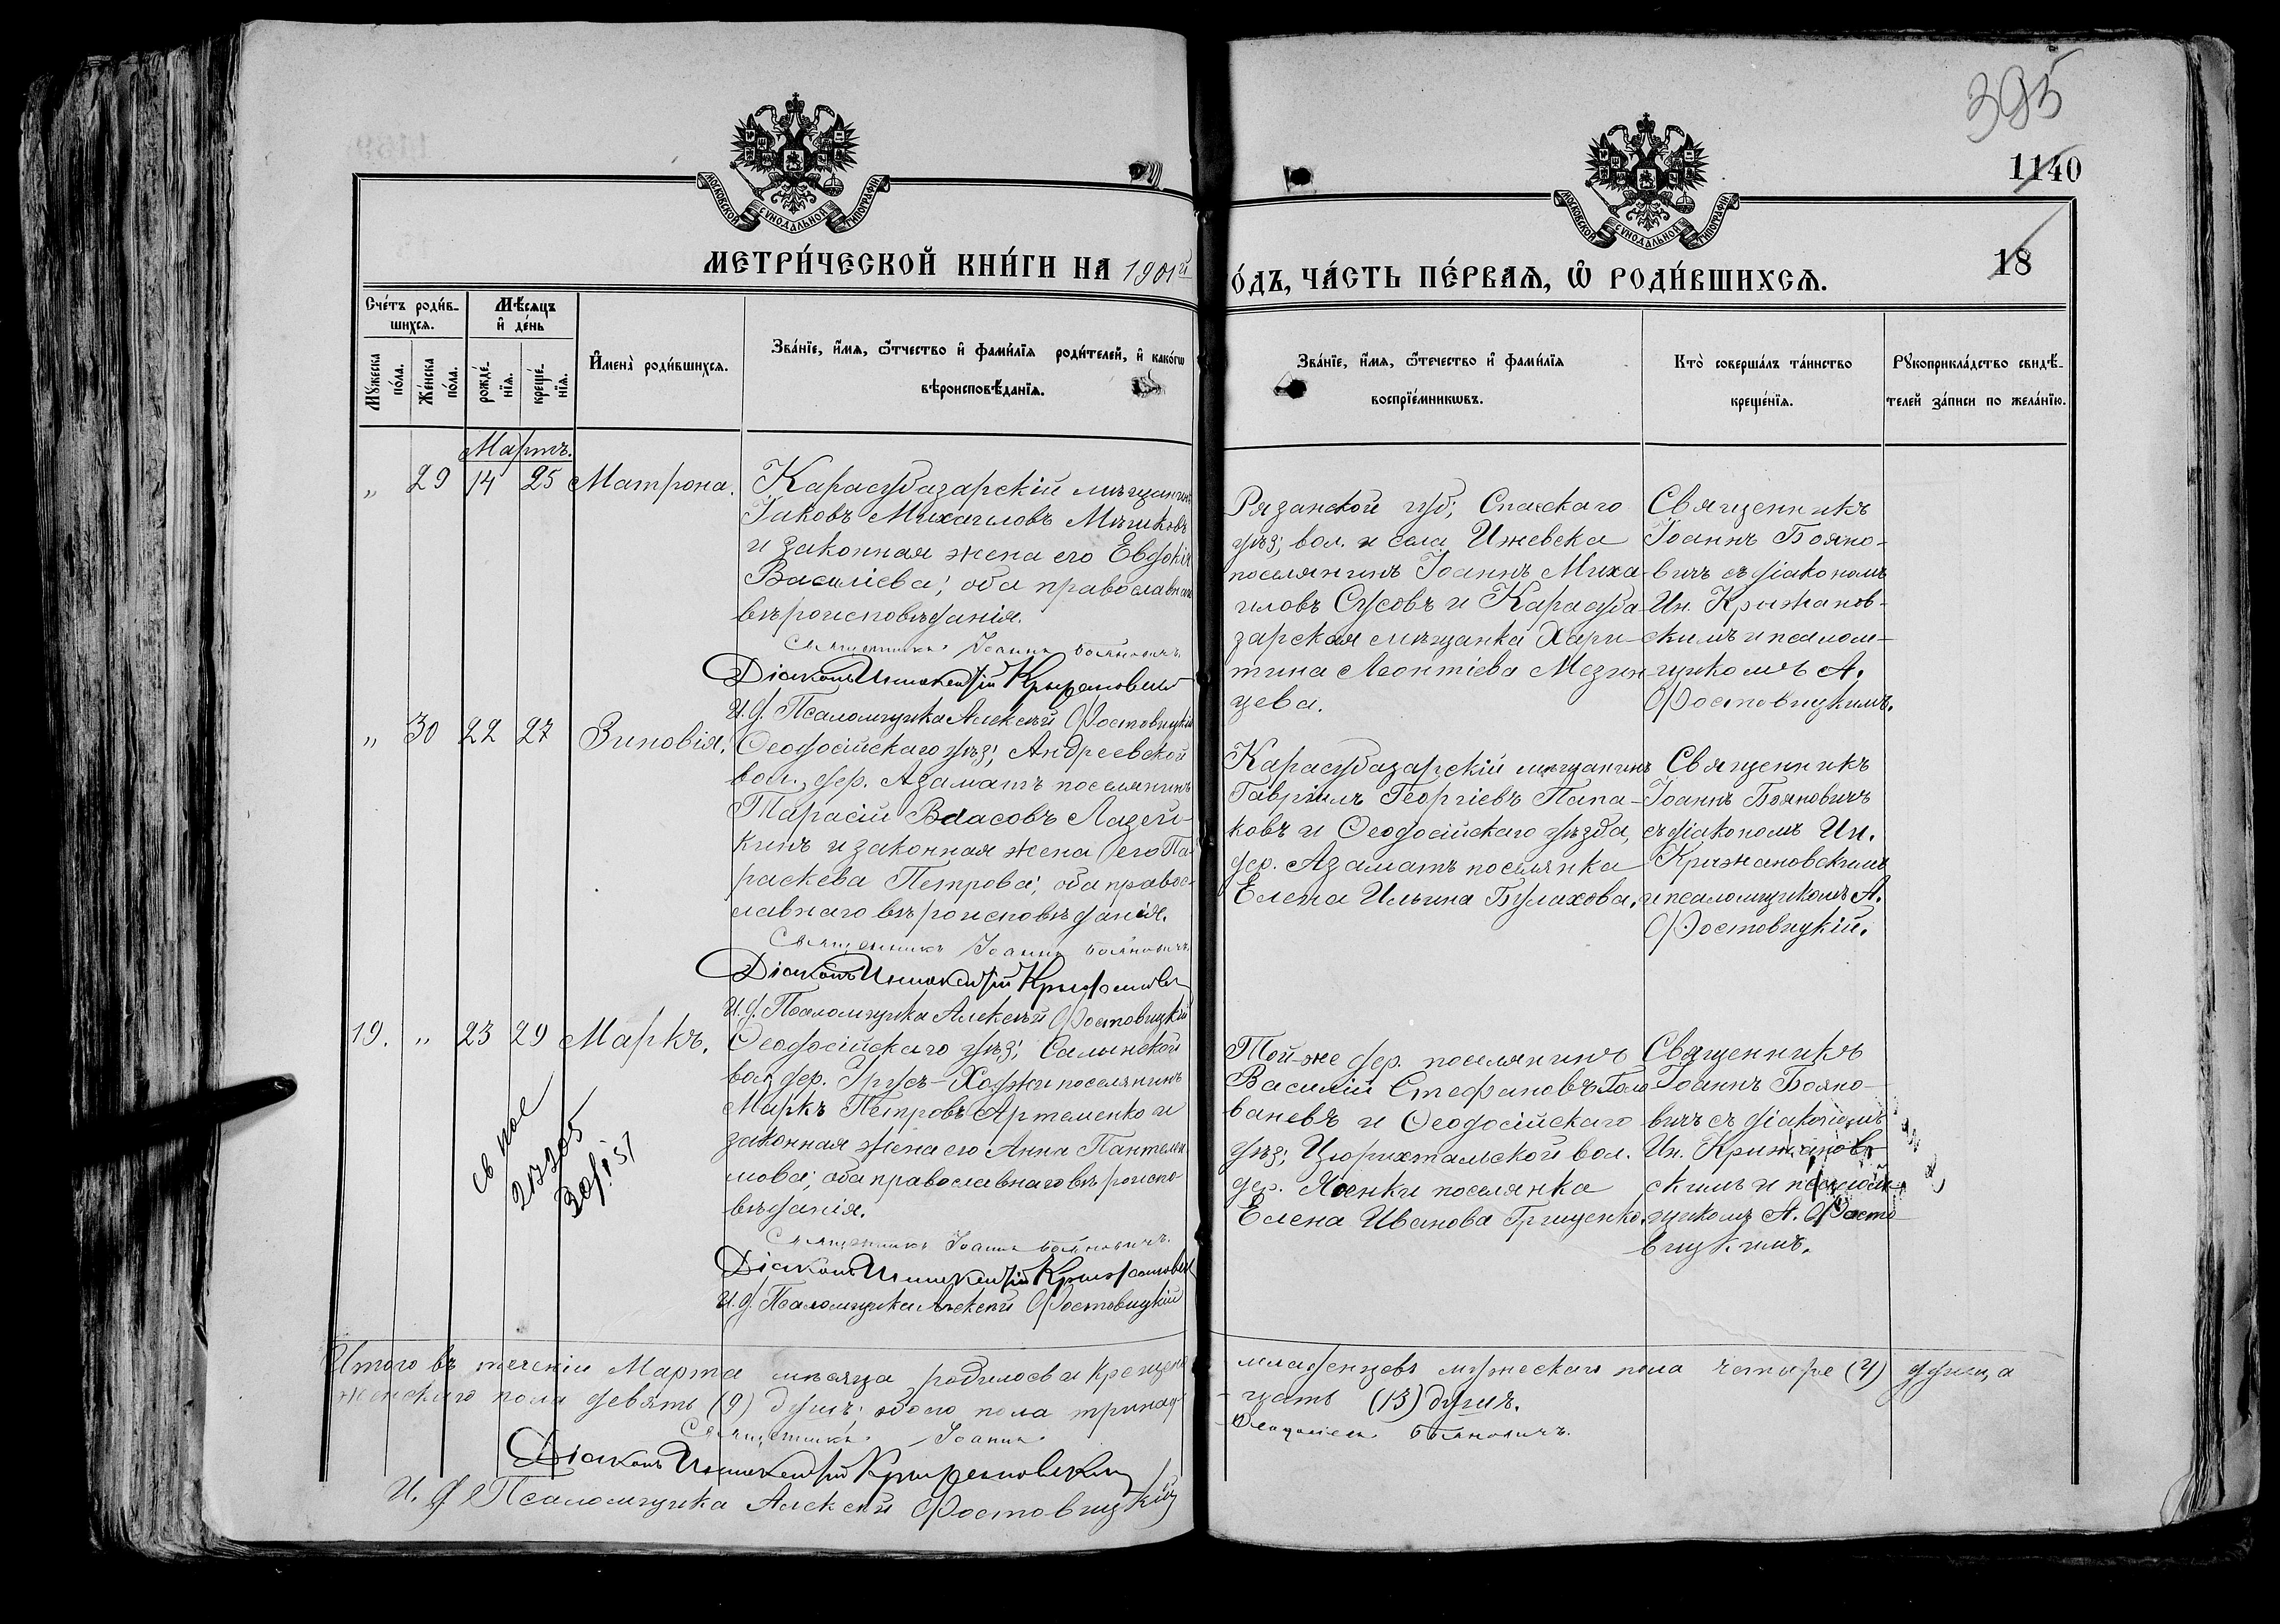 395
1140
18
МОСКОВСКОЙ СѴНОДАЛЬНОЙ ТИПОГРАФІИ
МЕТРИ́ЧЕСКОЙ КНИ́ГИ НА 1901й
МОСКОВСКОЙ СѴНОДАЛЬНОЙ ТИПОГРАФІИ
О́ДЪ, ЧА́СТЬ ПЕ́РВАѦ, Ѡ РОДИ́ВШИХСѦ.
Сче́тъ роди́в-
шихсѧ.
Мꙋ́жеска
по́ла.
Же́нска
по́ла.
Мѣ́сѧцъ
и҆ де́нь
рожде́-
нїѧ.
креще́-
нїѧ.
И҆мена̀ роди́вшихсѧ.
Зва́нїе, и҆́мѧ, ѻ҆́тчество и҆ фами́лїѧ роди́телей, и҆ како́гѡ
вѣроисповѣ́данїѧ.
Зва́нїе, и҆́мѧ, ѻ҆́течество и҆ фами́лїѧ
воспрїе́мникѡвъ.
Кто̀ соверша́лъ та́инство
креще́нїѧ.
Рꙋкоприкла́дство свидѣ́-
телей за́писи по жела́нїю.
Мартъ.
„ 29 14 25 Матрона.
Карасубазарскій мѣщанинъ
Іаковъ Михаиловъ Мѣшковъ
и законная жена его Евдокія
Василіева; оба православнаго
вѣроисповѣданія.
Священникъ Іоаннъ Бояновичъ
Діаконъ Иннокентій Крыжановскій
И. д. Псаломщика Алексѣй Ѳостовицкій
Рязанской губ; Спасскаго
уѣз; вол. и села Ижевска
поселянинъ Іоаннъ Миха-
иловъ Сусовъ и Карасуба-
зарская мѣщанка Хари-
тина Леонтіева Мезин
цева.
Священникъ
Іоаннъ Бояно-
вичъ съ діакономъ
Ин. Крыжанов-
скимъ и псалом-
щикомъ А.
Ѳостовицкимъ.
„ 30 22 27 Зиновія.
Ѳеодосійскаго уѣз; Андреевской
вол., дер. Азаматъ поселянинъ
Тарасій Власовъ Лазей-
кинъ и законная жена его Па-
раскева Петрова; оба правос-
лавнаго вѣроисповѣданія.
Священникъ Іоаннъ Бояновичъ
Діаконъ Иннокентій Крыжановскій
И. д. Псаломщика Алексѣй Ѳостовицкій
Карасубазарскій мѣщанинъ
Гавріилъ Георгіевъ Папа-
ковъ и Ѳеодосійскаго уѣзда,
дер. Азаматъ поселянка
Елена Ильина Булахова.
Священникъ
Іоаннъ Бояновичъ
съ діакономъ Ин.
Крыжановскимъ
и псаломщикомъ А.
Ѳостовицкій.
19. „ 23 29 Маркъ.
Ѳеодосійскаго уѣз; Салынской
вол. дер. поселянинъ
Маркъ Петровъ Артеменко и
законная жена его Анна Пантелеи-
мова; оба православнаго вѣроиспо-
вѣданія.
Священникъ Іоаннъ Бояновичъ.
Діаконъ Иннокентій Крыжановскій
И. д. Псаломщика Алексѣй Ѳостовицкій
Той-же дер. поселянинъ
Василій Стефановъ Голо-
ваневъ и Ѳеодосійскаго
уѣз; Цюрихтальской вол.
дер. поселянка
Елена Иванова Грищенко.
Священникъ
Іоаннъ Бояно-
вичъ съ діакономъ
Ин. Крыжанов-
скимъ и псалом-
щикомъ А. Ѳосто-
вицкимъ.
Итого въ теченіи Марта мѣсяца родилось и крещено младенцевъ мужескаго пола четыре (4) душ, а
женскаго пола девять (9) душъ; обоего пола тринад-цать (13) душъ.
Священникъ Іоаннъ Бояновичъ.
Діаконъ Иннокентій Крыжановскій
И. д. Псаломщика Алексѣй Ѳостовицкій